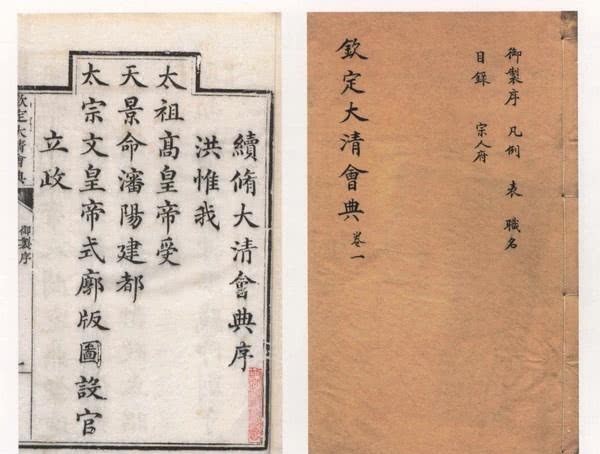 御製序 凡例 表 職名
目錄 宗人府
欽定大清會典 卷一
續脩大清會典序
洪惟我
太祖高皇帝受
天景命瀋陽建都
太宗文皇帝式廓版圖設官
立政
欽定大清會典 御製序 一